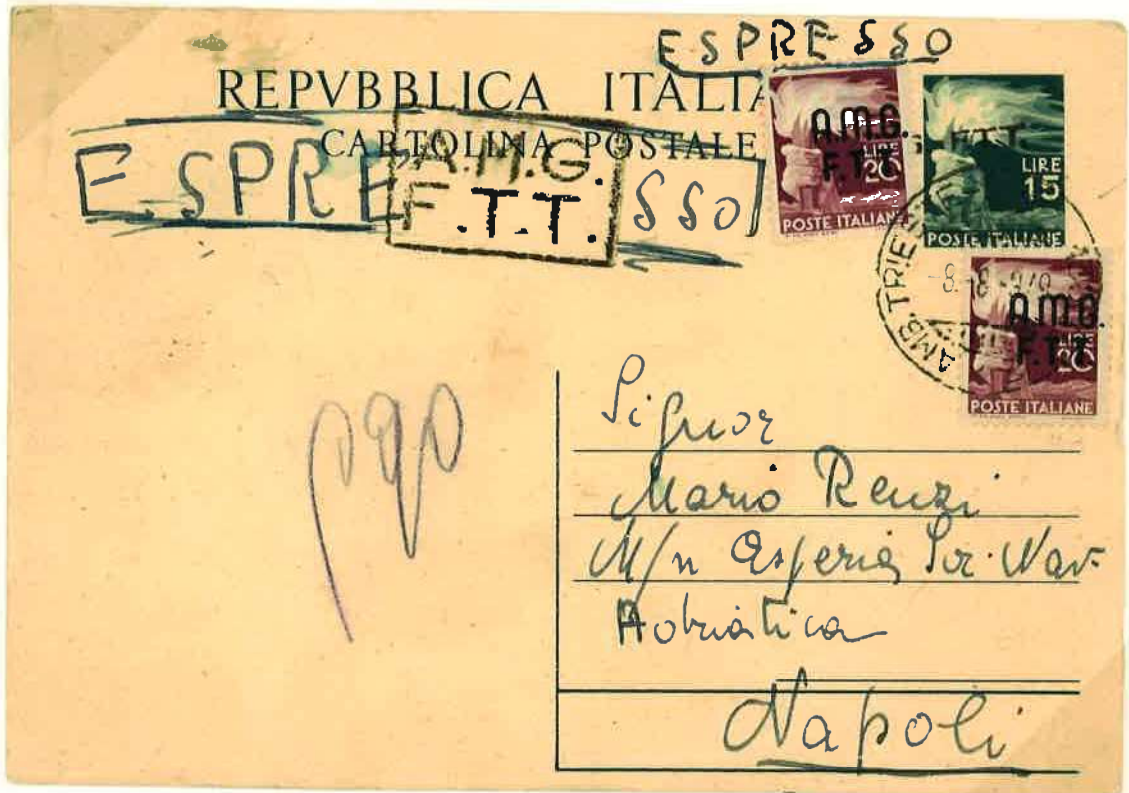 ESPRESSO
REPVBBLICA ITALIA
CARTOLINA POSTALE
ESPRE SSO
A.M.G.
F.T.T.
A.M.G.
F.T.T.
LIRE
20
POSTE ITALIANE
F.T.T.
LIRE
15
POSTE ITALIANE
AMB. TRIE
8-8-949
A.M.G.
F.T.T.
LIRE
20
POSTE ITALIANE
Signor
Mario Renzi
M/n Esperia Soc. Nav.
Adriatica
Napoli